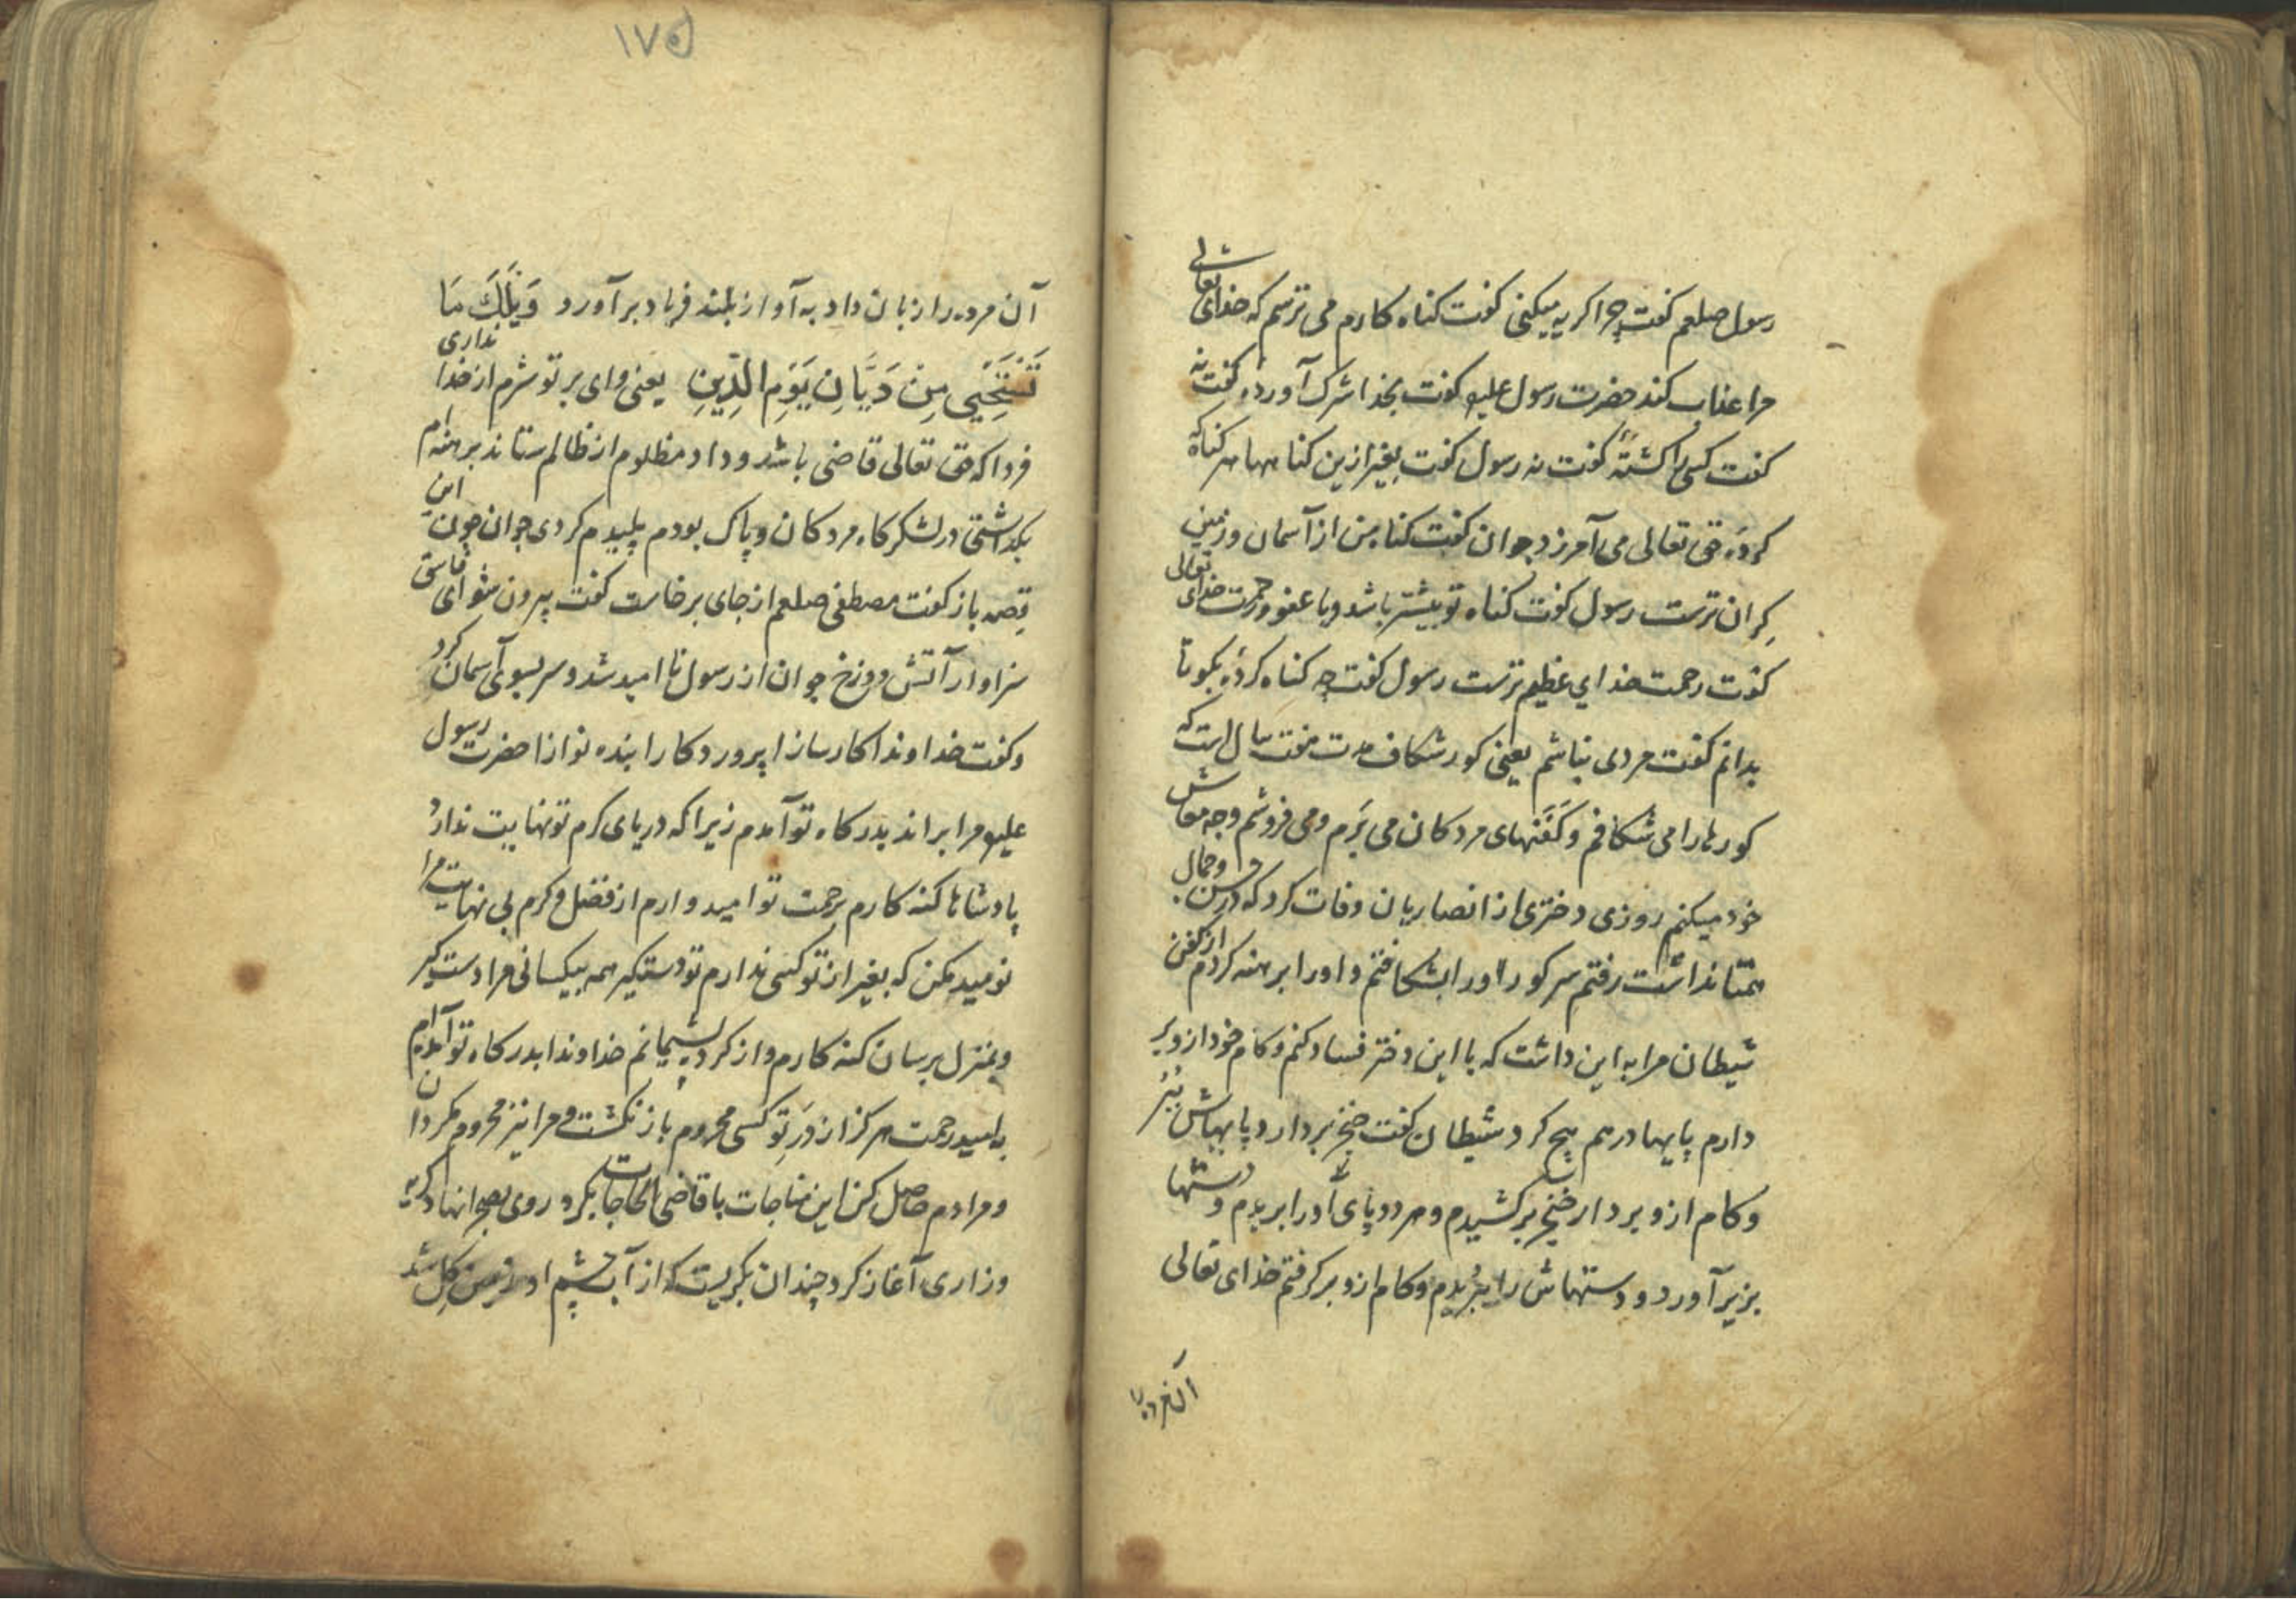 رسول صلعم کفت چرا کریه میکنی کفت کناه کارم می ترسم که خدای تعالی
مرا عذاب کند حضرت رسول علیه کفت بخدا شرک آورده کفت نه
کفت کسی را کشتهٔ کفت نه رسول کفت بغیر ازین کناهها هر کناه که
کردهٔ حق تعالی می آمرزد جوان کفت کناه من از آسمان و زمین
کران ترست رسول کفت کناه تو بیشتر باشد و یا عفو و رحمت خدای تعالی
کفت رحمت خدای عظیم ترست رسول کفت چه کناه کردهٔ بکو تا
بدانم کفت مردی نباشم یعنی کور شکاف مدت هفت سال است که
کورها را می شکافم و کفنهای مردکان می برم و می فروشم وجه معاش
خود میکنم روزی دختری از انصاریان وفات کرد که در حسن و جمال
همتا نداشت رفتم سر کور او را بشکافتم و او را برهنه کردم از کفن
شیطان مرا به این داشت که با این دختر فساد کنم و کام خود ازو بر
دارم پایها درهم پیچ کرد شیطان کفت خنجر بردار و پایهاش ببر
و کام ازو بردار خنجر برکشیدم و هر دو پای او را بریدم و دستها
بزیر آورد و دستهاش را ببریدم و کام ازو برکرفتم خدای تعالی
آن مرده را
۱۷۵
آن مرده را زبان داد به آواز بلند فریاد برآورد وَیلَکَ مَا
تَستَحیی مِن دَیّانِ یَومِ الدّینِ یعنی وای بر تو شرم از خدا نداری
فردا که حق تعالی قاضی باشد و داد مظلوم از ظالم ستاند برهنه ام
بکداشتی در لشکرکاه مردکان و پاک بودم پلیدم کردی جوان چون این
قصه باز کفت مصطفی صلعم از جای برخاست کفت بیرون شو ای فاسق
سزاوار آتش دوزخ جوان از رسول نا امید شد و سر بسوی آسمان کرد
و کفت خداوندا کارسازا پروردکارا بنده نوازا حضرت رسول
علیه مرا براند بدرکاه تو آمدم زیرا که دریای کرم تو نهایت ندارد
پادشاها کنه کارم برحمت تو امید وارم از فضل و کرم بی نهایت مرا
نومید مکن که بغیر از تو کسی ندارم تو دستکیر همه بیکسانی مرا دست کیر
و بمنزل برسان کنه کارم و از کرده پشیمانم خداوندا بدرکاه تو آمده ام
به امید رحمت هرکز از در تو کسی محروم باز نکشت و مرا نیز محروم مکردان
و مرادم حاصل کن این مناجات با قاضی الحاجات بکرد روی بصحرا نهاد کریه
و زاری آغاز کرد چندان بکریست که از آب چشم او زمین کل شد